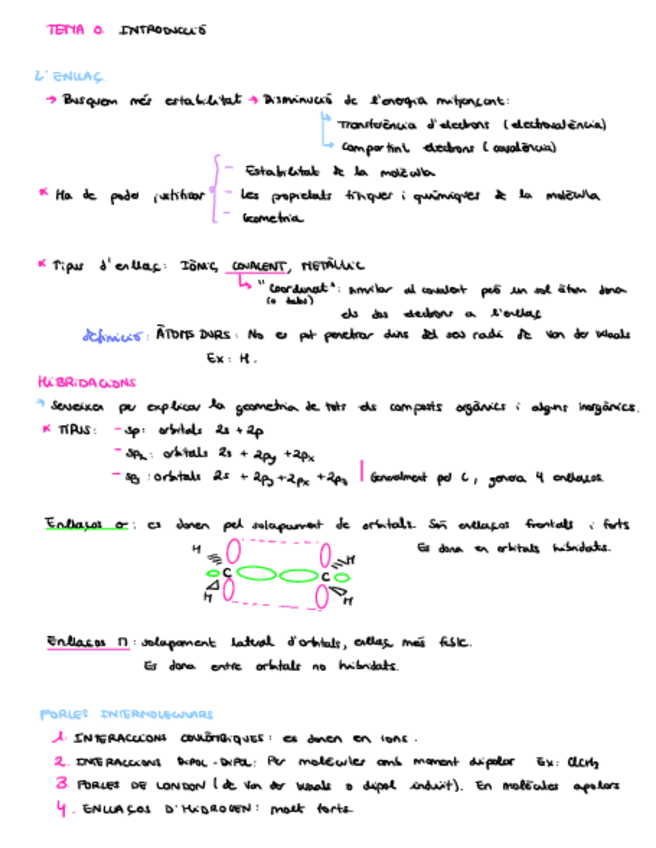 TEMA 0. INTRODUCCIÓ
L'ENLLAÇ.
→ Busquem més estabilitat → Disminució de l'energia mitjançant:
Transferència d'electrons (electrovalència)
Compartint electrons (covalència)
Estabilitat de la molècula
* Ha de poder justificar - Les propietats físiques i químiques de la molècula
Geometria
* Tipus d'enllaç: IÒNIC, COVALENT, METÀL·LIC
"Coordinat": similar al covalent però un sol àtom dona
(o datiu)
els dos electrons a l'enllaç
definició: ÀTOMS DURS: No es pot penetrar dins del seu radi de Van der Waals
Ex: H.
HIBRIDACIONS
→ Serveixen per explicar la geometria de tots els composts orgànics i alguns inorgànics.
* TIPUS: - sp: orbitals 2s + 2p
- sp2: orbitals 2s + 2py + 2px
- sp3: orbitals 2s + 2py + 2px + 2pz | Generalment pel C, genera 4 enllaços
Enllaços σ: es donen pel solapament de orbitals. Són enllaços frontals i forts
Es dona en orbitals hibridats.
H H
C C
H H
Enllaços Π: solapament lateral d'orbitals, enllaç més feble.
Es dona entre orbitals no hibridats.
FORCES INTERMOLECULARS
1. INTERACCIONS COULÒMBIQUES: es donen en ions.
2. INTERACCIONS DIPOL-DIPOL: Per molècules amb moment dipolar Ex: ClCH3
3 FORCES DE LONDON (de Van der Waals o dipol induït). En molècules apolars
4. ENLLAÇOS D'HIDROGEN: molt forts